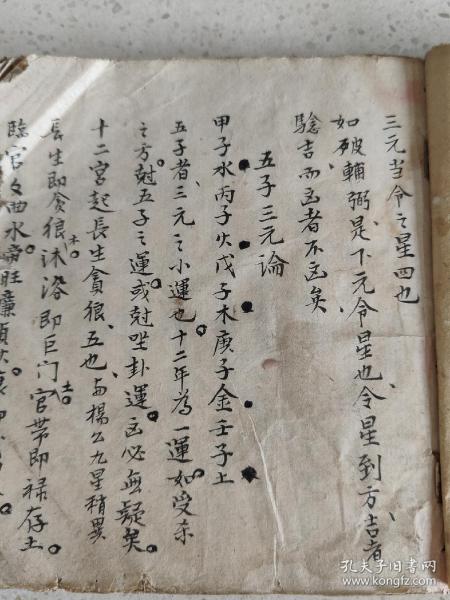 三元当令之星四也
如破輔弼是下元令星也、令星到方、吉者
騐吉而凶者不凶矣、
五子三元論
甲子水丙子火戊子木庚子金壬子土
五子者、三元之小運也。十二年為一運。如受杀
之方尅五子之運。或尅坐卦運。凶必無疑矣。
十二宮起長生貪狼、五也、与楊公九星稍異
長生即貪狼木。沐浴即巨门土。官带即禄存土。
臨官文曲水。帝旺廉
孔夫子旧书网
www.kongfz.com